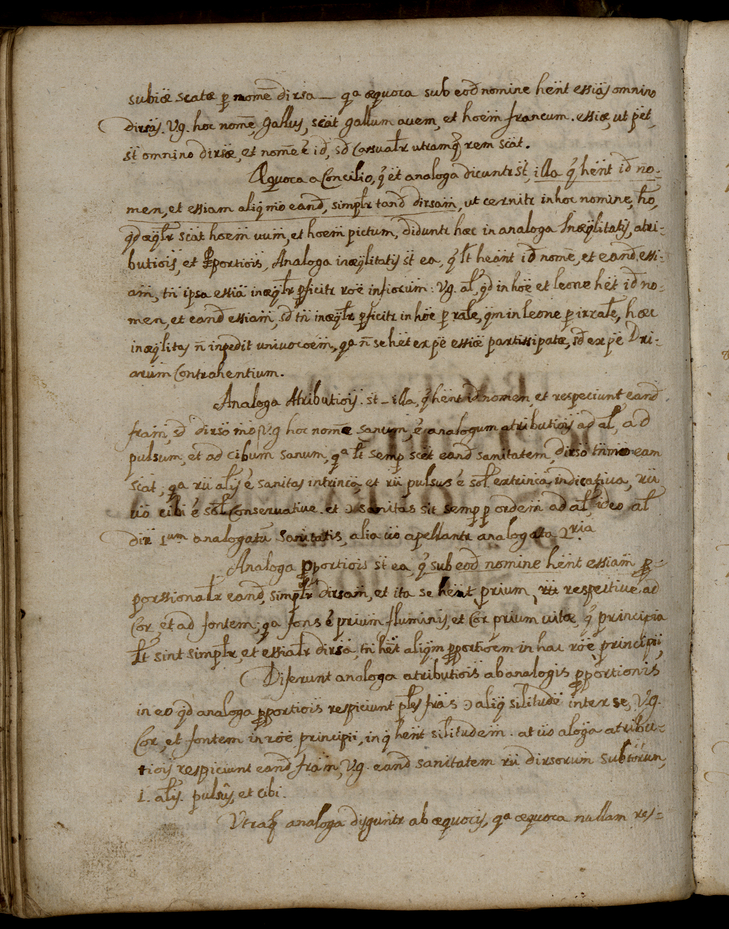 subiæ scatæ p nomē dirsa — qª æquoca sub eod nomine hēnt essiās omnino
dirsās. Vg. hoc nomē, Gallus, scāt gallum auem, et hoem francum. essiæ, ut pet,
st omnino dirsæ, et nomē ē id, sd Casualr utramq rem scāt.
Æquoca a Concilio, q et analoga dicuntr st, illa q hēnt id no-
men, et essiam aliq mo eand, simplr tand dirsam, ut cernitr in hoc nomine, ho,
qd æqlr scāt hoem uium, et hoem pictum, diduntr hæc in analoga Inæqlitatis, atri-
butiois, et Pportiois, Analoga inæqlitatis st ea, q lt heānt id nomē, et eand essi-
am, tn ipsa essia inæqlr pficitr roē inferiorum: Vg. al, qd in hoē et leone hēt id no-
men, et eand essiam, sd tn inæqlr pficitr in hoē p rale, qm in leone p irrale, hæc
inæqlitas n inpedit univocoem, qª n se hēt ex pe essiæ partissipatæ, sd ex pe Dri-
arum Contrahentium.
Analoga Atributiois. st — illa, q hēnt id nomen et respeciunt eand
fram, sd dirso mo, Vg hoc nome sanum, ē analogum atributiois ad al, ad
pulsum, et ad cibum sanum, qª lt semp scet eand sanitatem dirso tn mo eam
scāt, qª rū alis ē sanitas intrinca, et rū pulsus ē sol extrinca, indicatiua, rū
uo cibi ē sol Conseruatiue. et ɔ sanitas sit semp p ordem ad al ideo al
dir 1um analogatū sanitatis, alia uo apellantr analogata 2ria
Analoga pportiois st ea q sub eod nomine hēnt essiam p-
porssionalr eand, simplr dirsam, et ita se hēnt prium, rū respetiue ad
Cor et ad fontem; qª fons ē prium fluminis, et Cor prium uitæ q principia
lt sint simplr, et essialr dirsa, tn hēt aliqm pportioem in hac roē principii,
Diferunt analoga atributiois ab analogis pportionis
in eo qd analoga pportiois respiciunt ples fras ɔ aliq silitudē inter se, Vg.
Cor, et fontem in roē principii, in q hēnt silitudem. at uo aloga atribu-
tiois respiciunt eand fram, Vg. eand sanitatem rū dirsorum subtorum,
1. alis. pulsus, et cibi.
Vtraq analoga disguntr ab æquocis, qª æquoca nullam res-